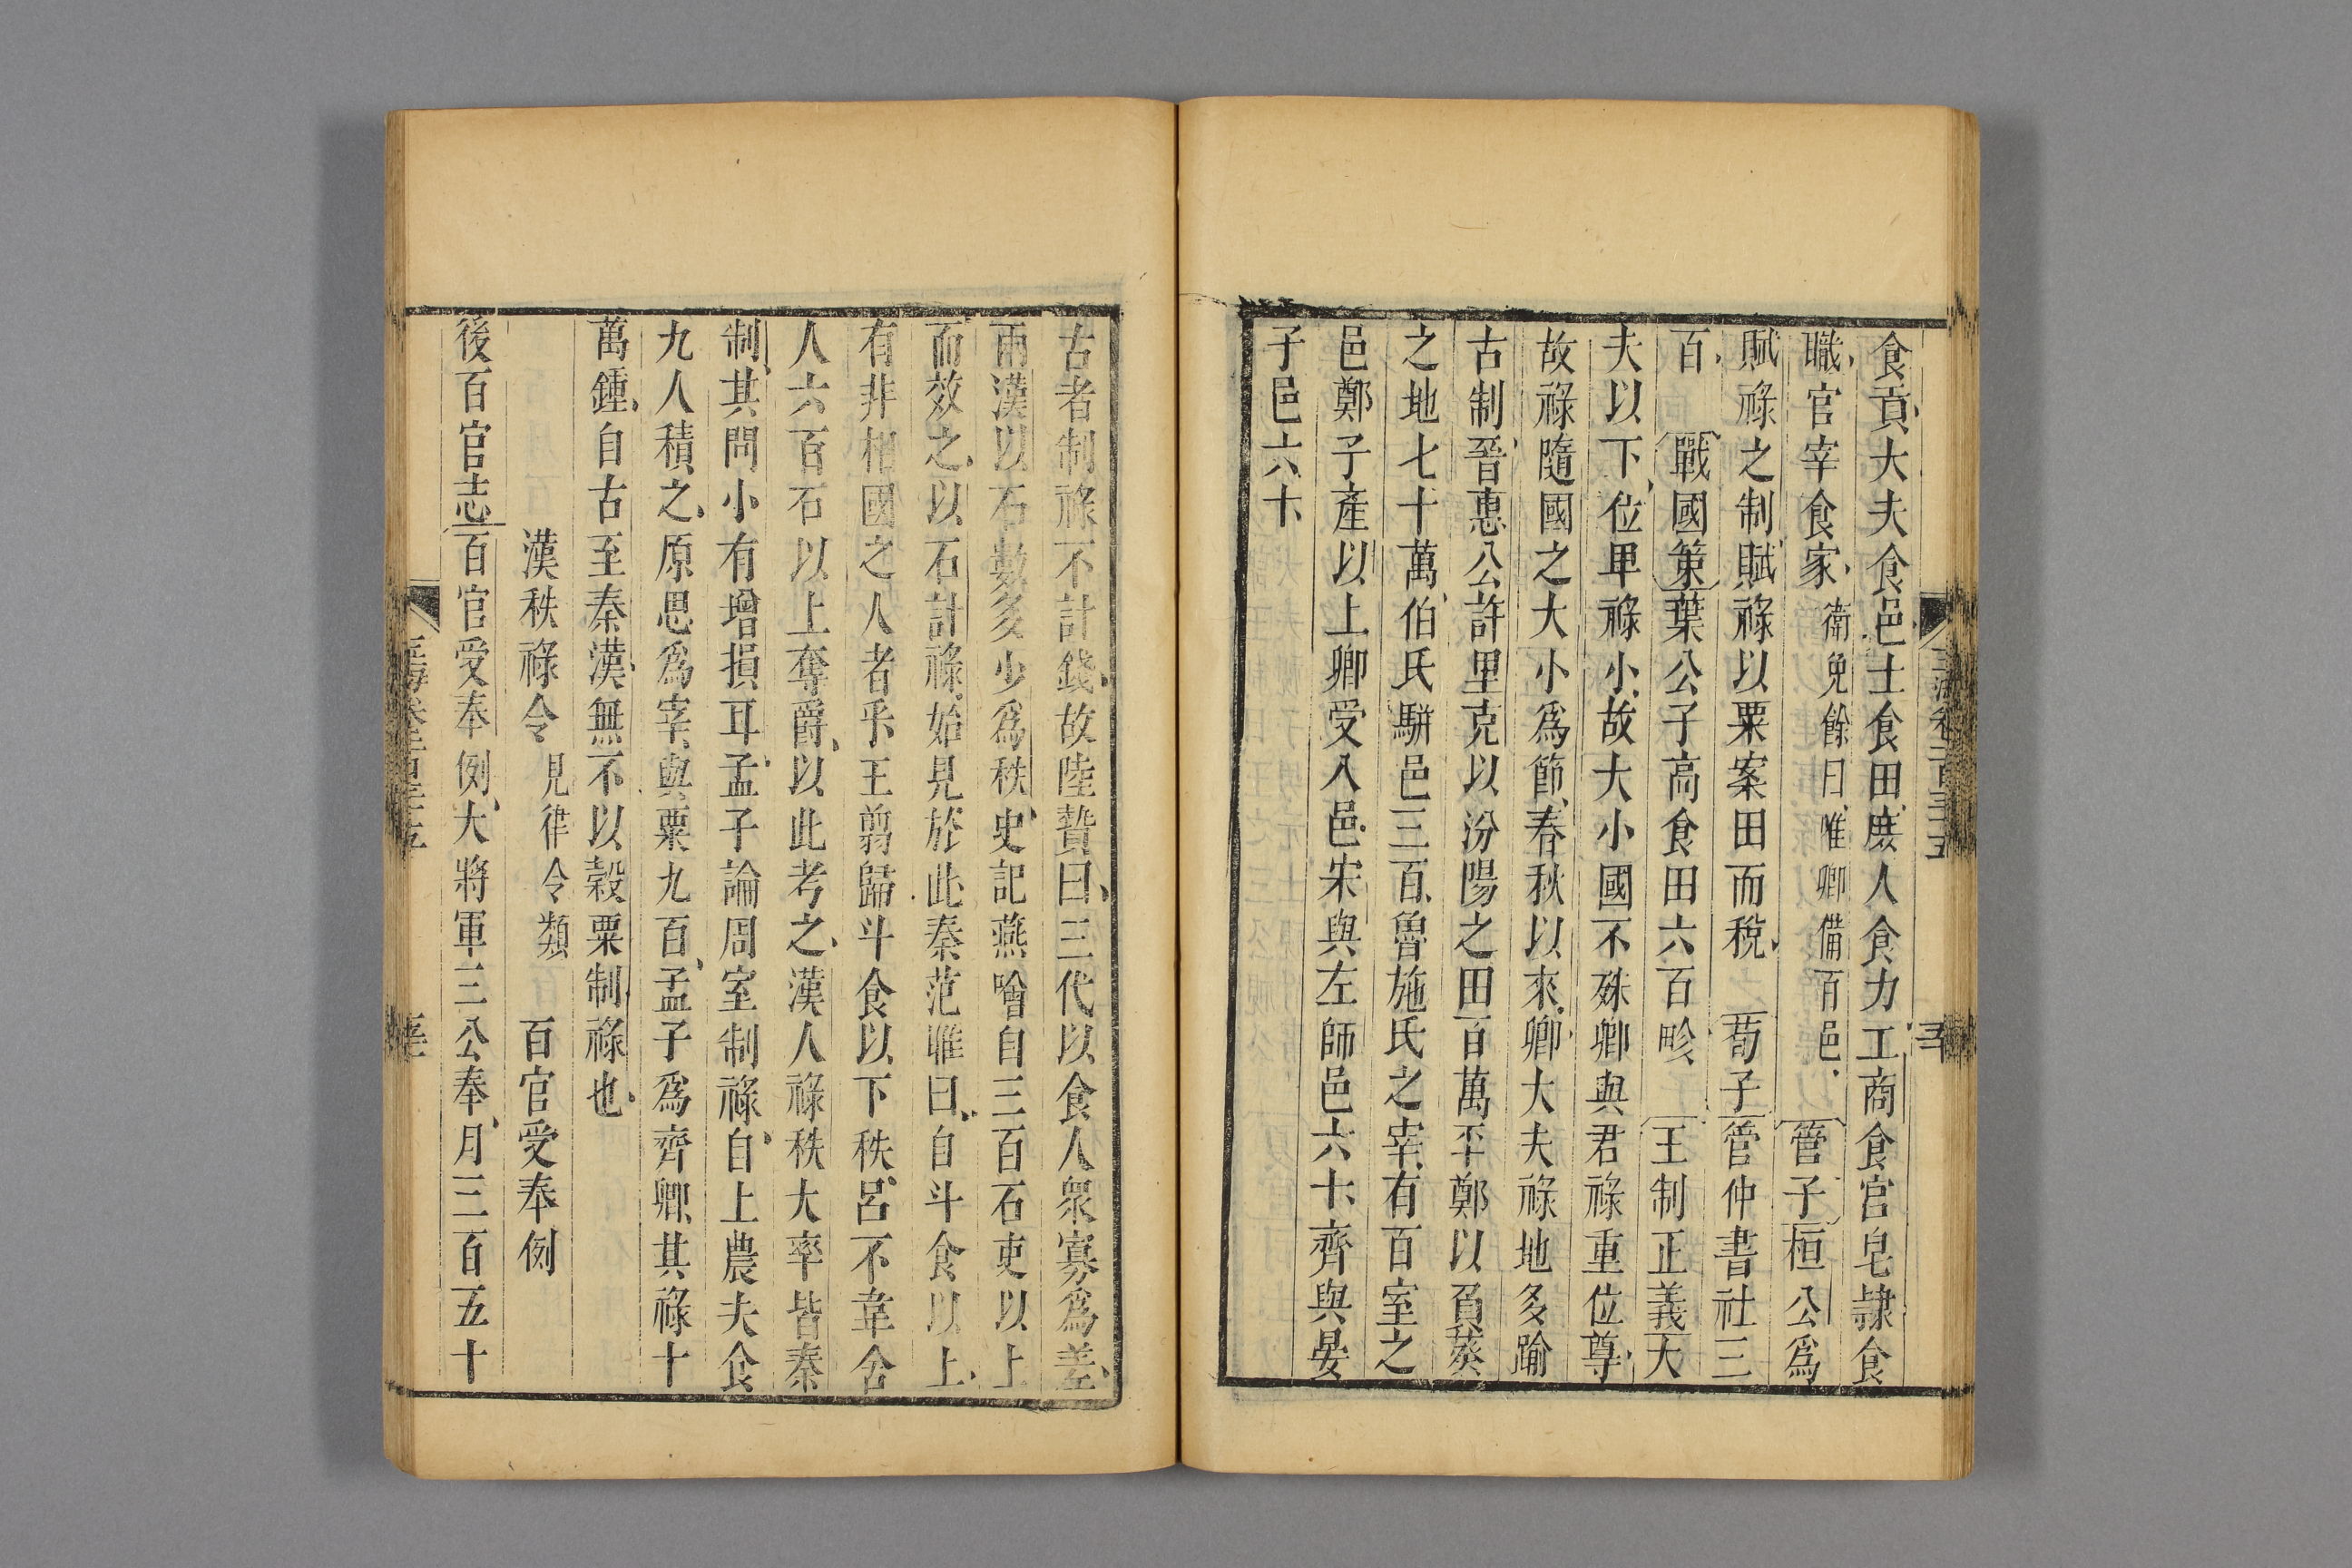 食貢大夫食邑士食田庶人食力工商食官皂隷食
職官宰食家衛免餘曰唯卿備百邑管子桓公爲
賦祿之制賦祿以粟案田而稅荀子管仲書社三
百戰國策葉公子高食田六百畛王制正義大
夫以下位卑祿小故大小國不殊卿與君祿重位尊
故祿隨國之大小爲節春秋以來卿大夫祿地多踰
古制晉惠公許里克以汾陽之田百萬丕鄭以負葵
之地七十萬伯氏駢邑三百魯施氏之宰有百室之
邑鄭子產以上卿受八邑宋與左師邑六十齊與晏
子邑六十
古者制祿不計錢故陸贄曰三代以食人衆寡爲差
兩漢以石數多少爲秩史記燕噲自三百石吏以上
而效之以石計祿始見於此秦范雎曰自斗食以上
有非相國之人者乎王翦歸斗食以下秩呂不韋舍
人六百石以上奪爵以此考之漢人祿秩大率皆秦
制其問小有增損耳孟子論周室制祿自上農夫食
九人積之原思爲宰與粟九百孟子爲齊卿其祿十
萬鍾自古至秦漢無不以穀粟制祿也
漢秩祿令見律令類百官受奉例
後百官志百官受奉例大將軍三公奉月三百五十